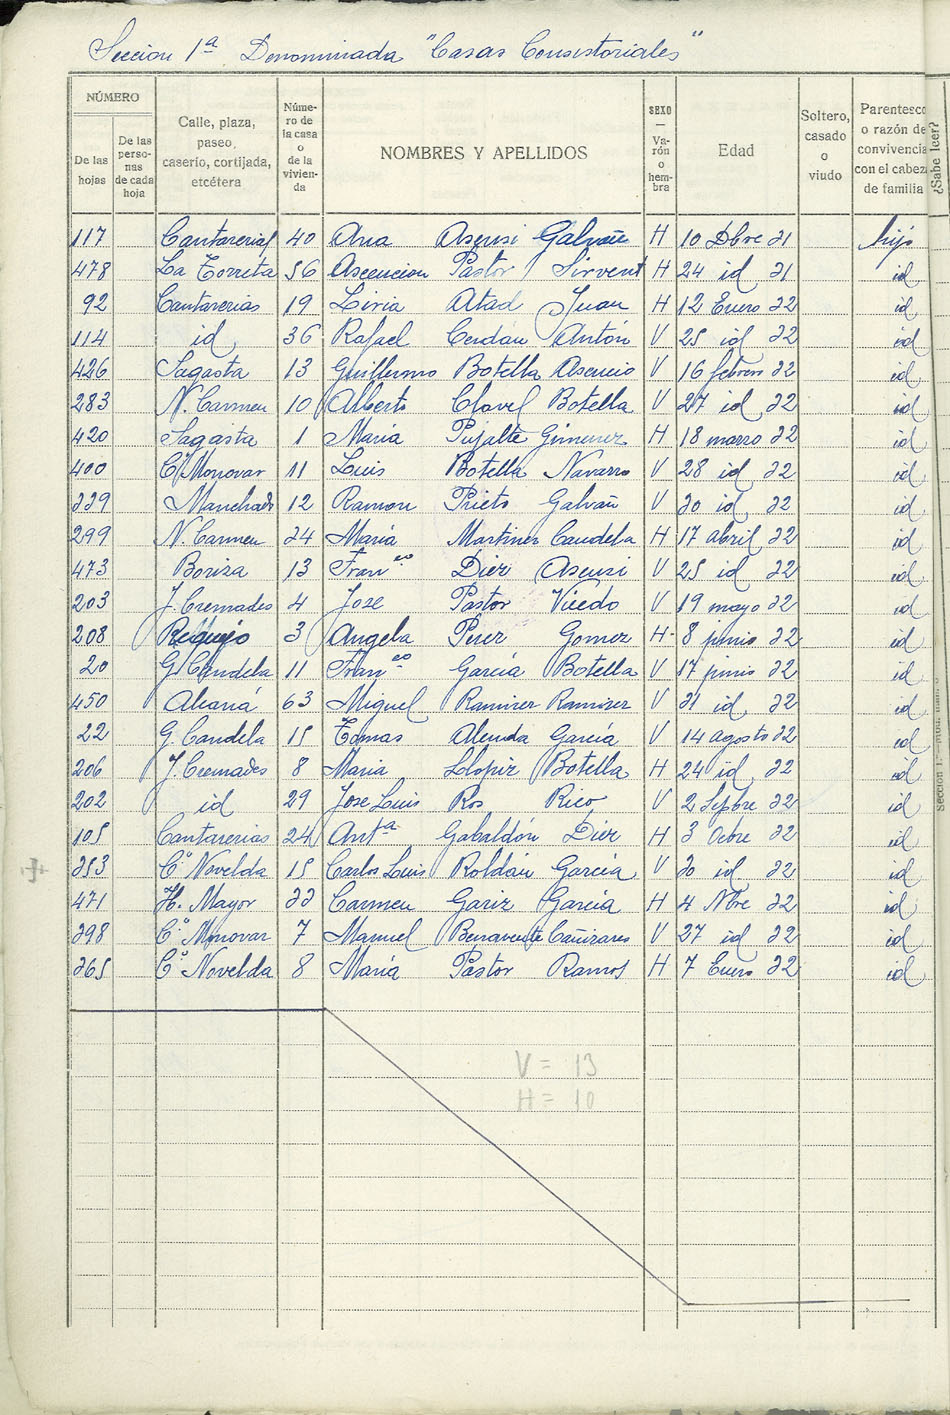 Sección 1ª Denominada "Casas Consistoriales"
NÚMERO
De las hojas
De las perso-nas de cada hoja
Calle, plaza, paseo, caserío, cortijada, etcétera
Núme-ro de la casa o de la vivien-da
NOMBRES Y APELLIDOS
SEXO — Va-rón o hem-bra
Edad
Soltero, casado o viudo
Parentesco o razón de convivencia con el cabeza de familia
¿Sabe leer?
117 Cantarerias 40 Ana Asensi Galvañ H 10 Dbre 31 hijo
478 La Torreta 56 Ascencion Pastor Sirvent H 24 id 31 id
92 Cantarerias 19 Liria Atad Juan H 12 Enero 32 id
114 id 36 Rafael Cerdán Antón V 25 id 32 id
426 Sagasta 13 Guillermo Botella Asencio V 16 febrero 32 id
283 N. Carmen 10 Alberto Clavel Botella V 27 id 32 id
420 Sagasta 1 Maria Pujalte Gimenez H 18 marzo 32 id
400 Cº Monovar 11 Luis Botella Navarro V 28 id 32 id
339 Manchado 12 Ramon Prieto Galvañ V 30 id 32 id
299 N. Carmen 34 María Martinez Candela H 17 abril 32 id
473 Boriza 13 Franco Diez Asensi V 25 id 32 id
203 J. Cremades 4 Jose Pastor Vicedo V 19 mayo 32 id
208 3 Angela Perez Gomez H 8 junio 32 id
20 G. Candela 11 Franco García Botella V 17 junio 32 id
450 63 Miguel Ramirez Ramirez V 31 id 32 id
22 G. Candela 15 Tomas Alenda García V 14 agosto 32 id
206 J. Cremades 8 Maria Llopiz Botella H 24 id 32 id
202 id 29 Jose Luis Ros Rico V 2 Sepbre 32 id
105 Cantarerias 24 Antª Gabaldón Diez H 3 Ocbre 32 id
353 Cº Novelda 15 Carlos Luis Roldán García V 30 id 32 id
471 H. Mayor 33 Carmen Gariz García H 4 Nbre 32 id
398 Cº Monovar 7 Manuel Benavente Cañizares V 27 id 32 id
365 Cº Novelda 8 María Pastor Ramos H 7 Enero 32 id
V = 13
H = 10